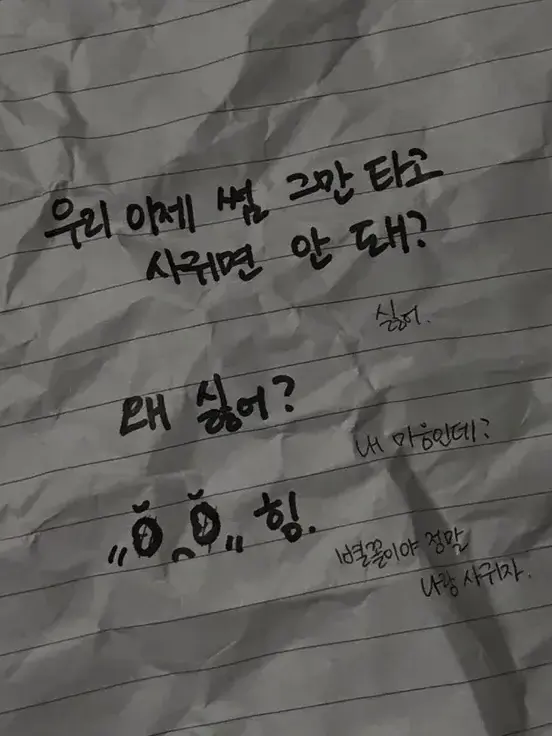 우리 이제 썸 그만 타고
사귀면 안 돼?
싫어.
왜 싫어?
내 마음인데?
힝.
별꼴이야 정말
나랑 사귀자.